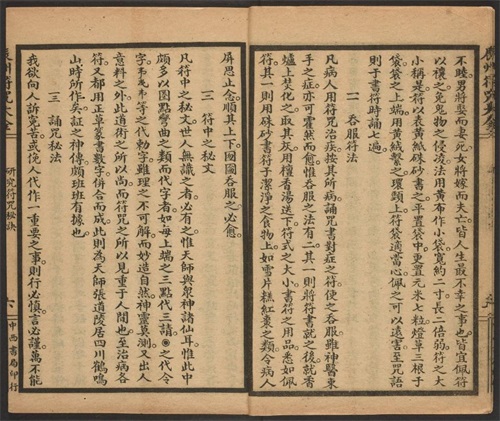 不睦男將娶而妻死女將嫁而夫亡皆人生最不幸之事也皆宜佩符
以禳之免鬼物之侵凌法用黃布作小袋寬約二寸長一倍弱符之大
小稱是符以表黃紙硃砂書之平置袋中更置元米七粒燈草三根于
袋袋之上端用黃絨繫之環頸上符袋適當心佩之可以遠害至咒語
則于書符時誦七遍
二 吞服符法
凡病人用符咒治疾按其所病誦咒書對症之符使之吞服雖神醫束
手之症亦可霍然而愈惟吞服之法有二其一則將符書就之後就香
爐上焚化之取其灰用檀香湯送下符式之大小書符之用品悉如佩
符其一則用硃砂書符于潔淨之食物上如雪片糕紅棗之類令病人
屏思止念順其上下囫圇吞服之必愈
三 符中之秘文
凡符中之秘文世人無識之者必有之惟天師與眾神諸仙耳惟此中
頗多以圈點彎曲之類而代字者如每上端之三點代三請◉之代令
字等之代勅字雖理之不可解而妙造自然神靈莫測又出人
意料之外此道術之所以高而符咒之所以見重于人間也至治病各
符又都用正草篆書數字併合而成此則為天師張道陵居四川鶴鳴
山時所作矣證之神傳頗班班有據也
三 誦咒秘法
我欲向人訴冤苦或俛人代作一重要之事則行必慎言必謹萬不能
研究符咒秘訣
六
中西書局印行